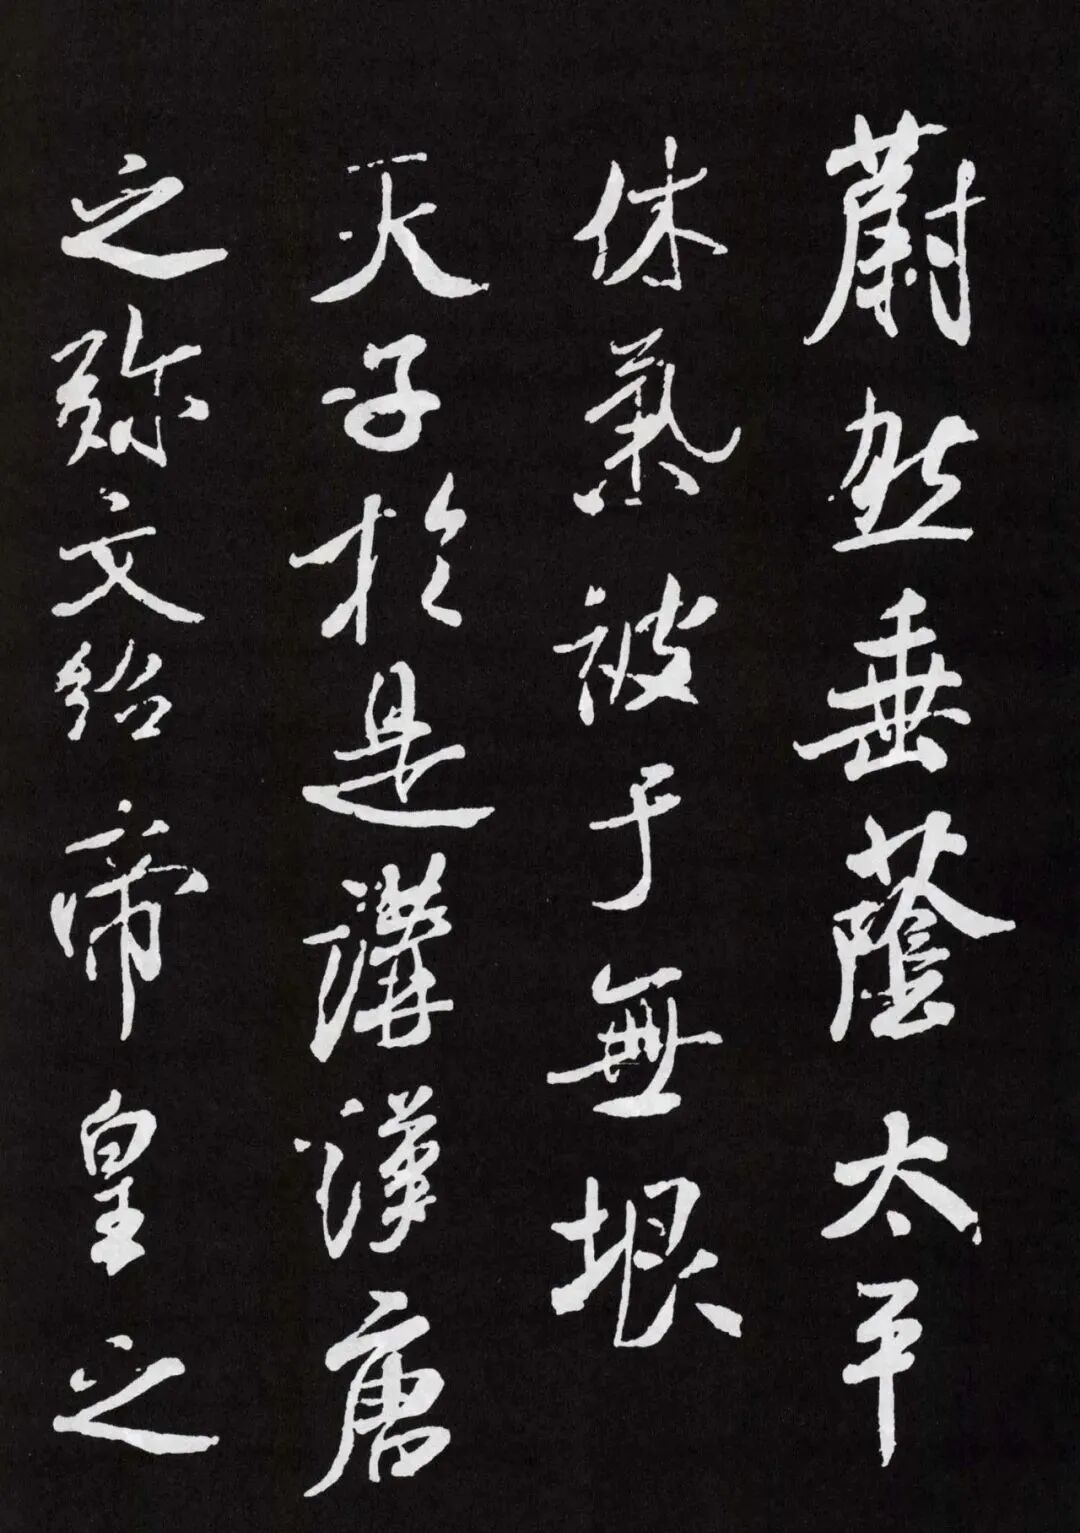 蔚然垂蔭太平
休氣被于無垠
天子於是講漢唐
之弥文紹帝皇之